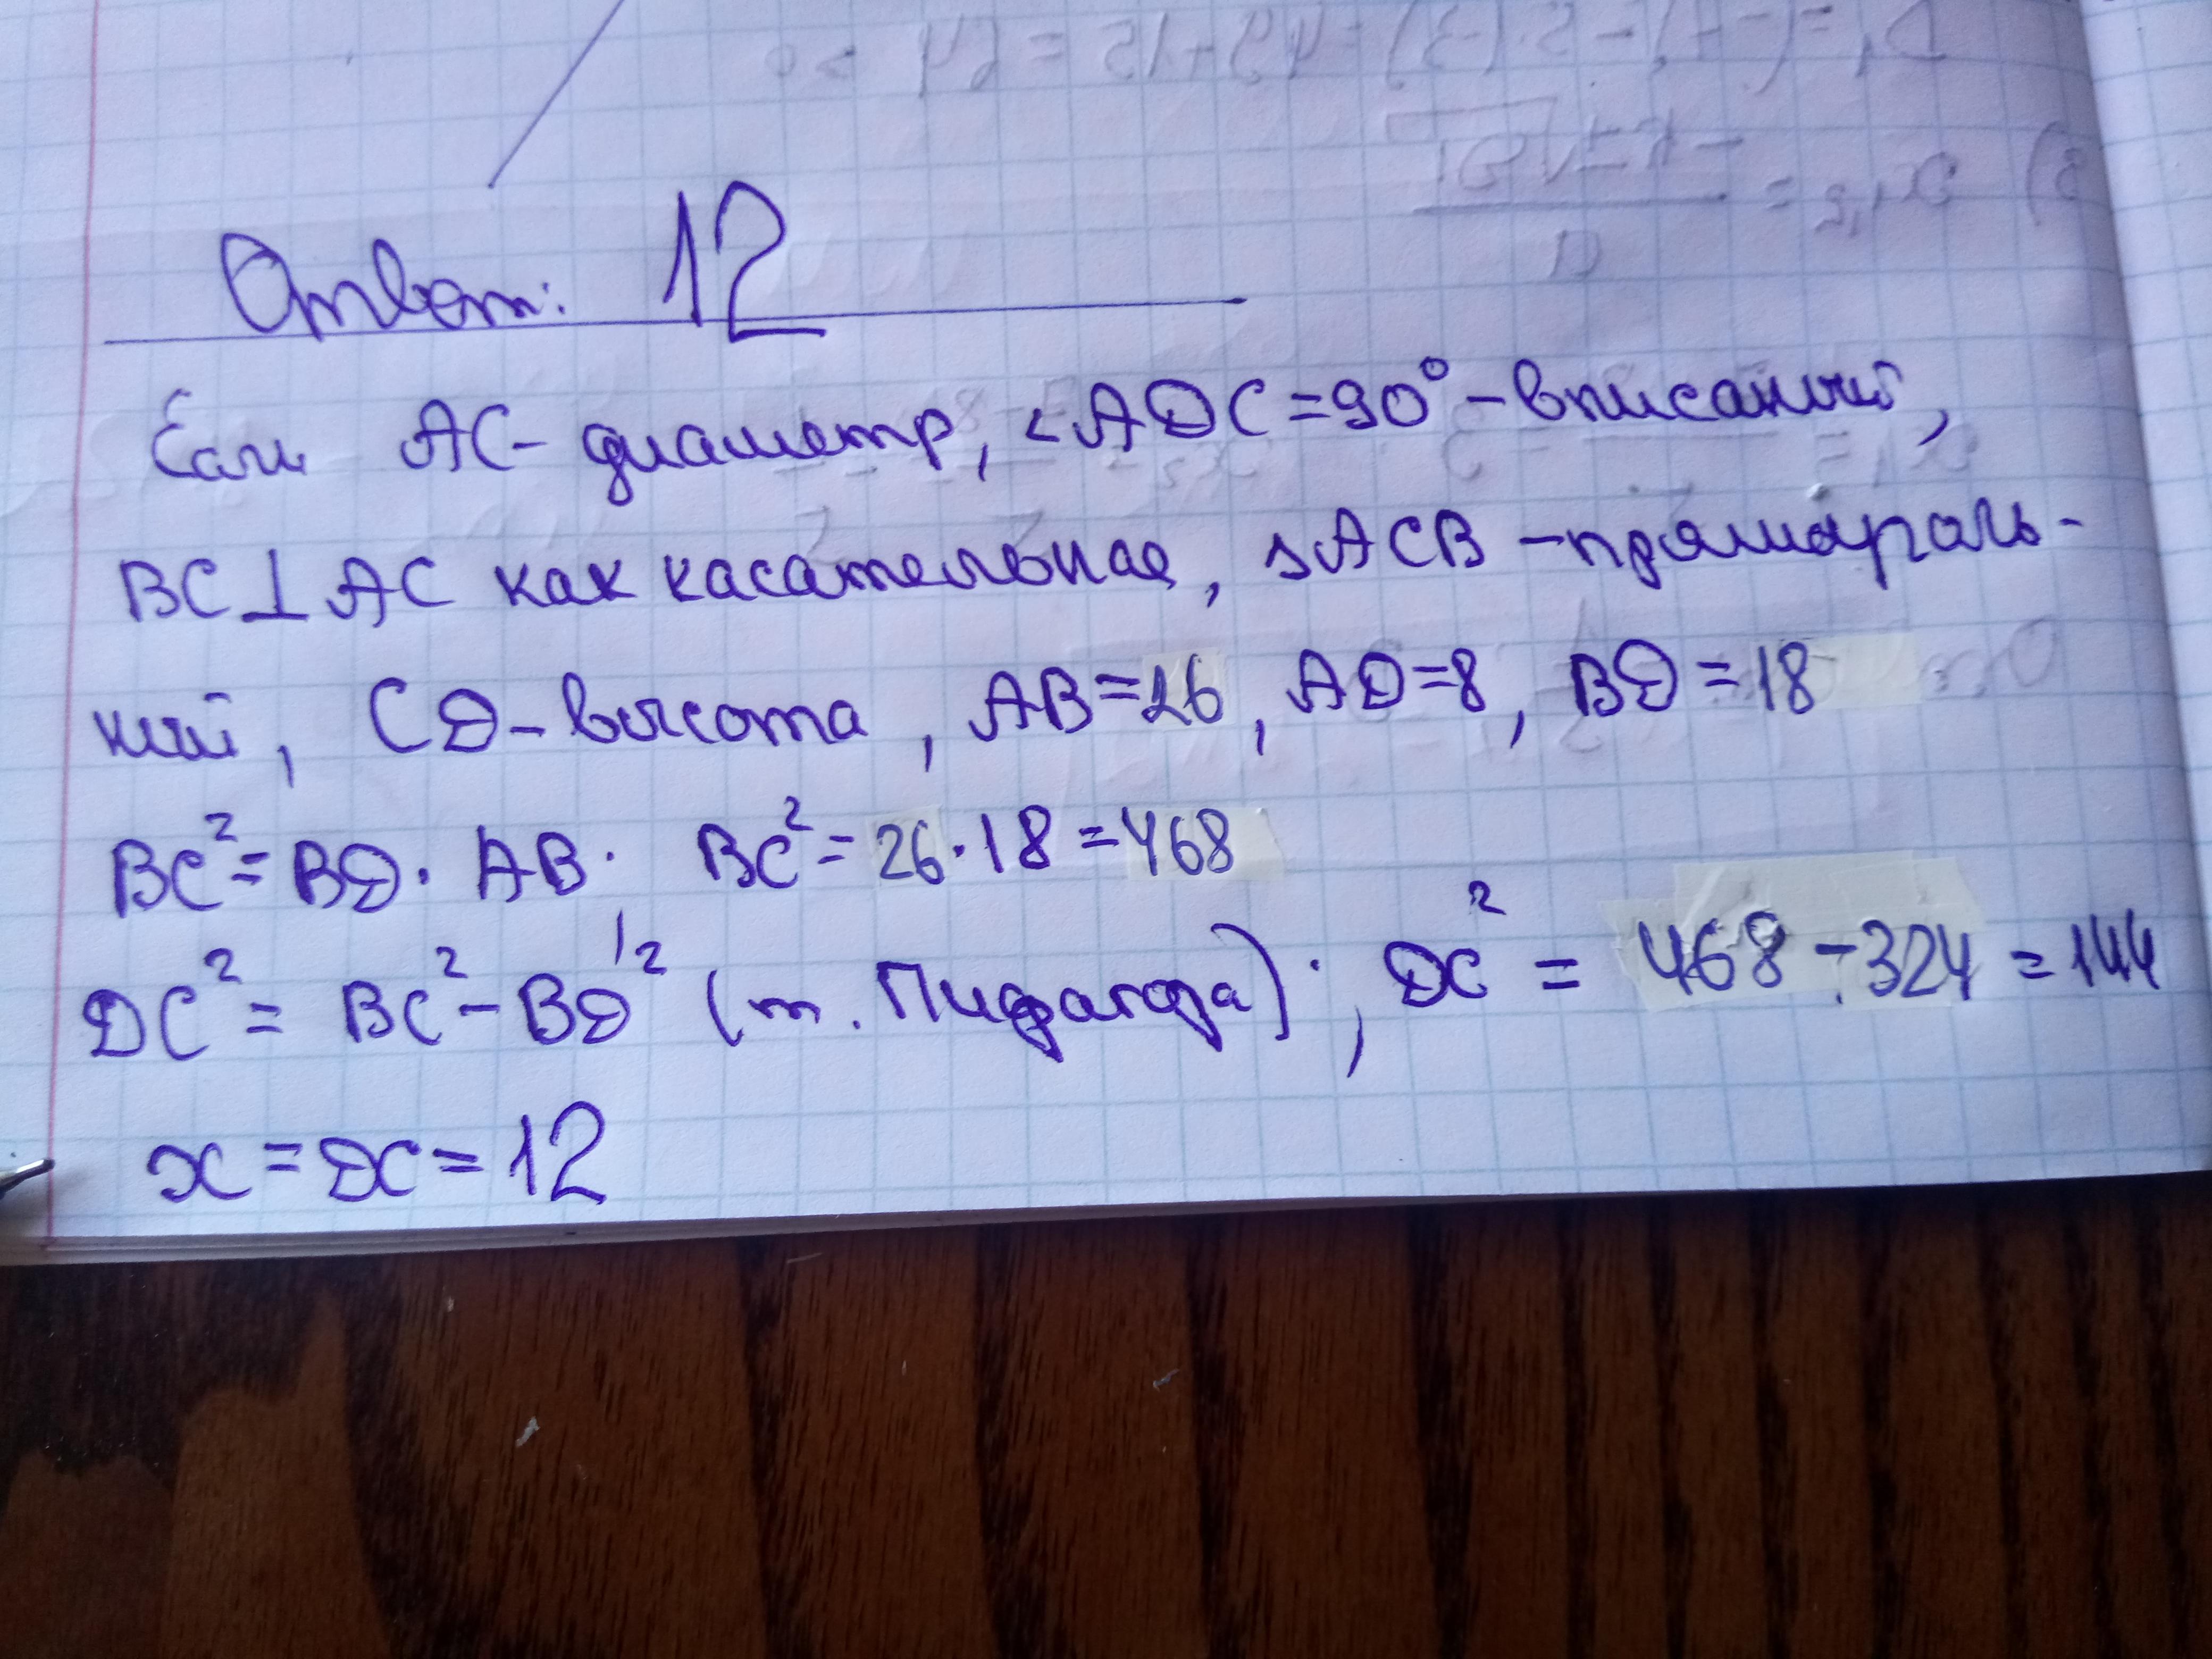 Ответ: 12
Если АС - диаметр, <ADC=90° - вписаный,
BC⊥AC как касательная, ▵ACB - прямоуголь-
ный, CD - высота, AB=26, AD=8, BD=18
BC²=BD·AB. BC²=26·18=468
DC²=BC²-BD² (т. Пифагора); DC²=468-324=144
x=DC=12